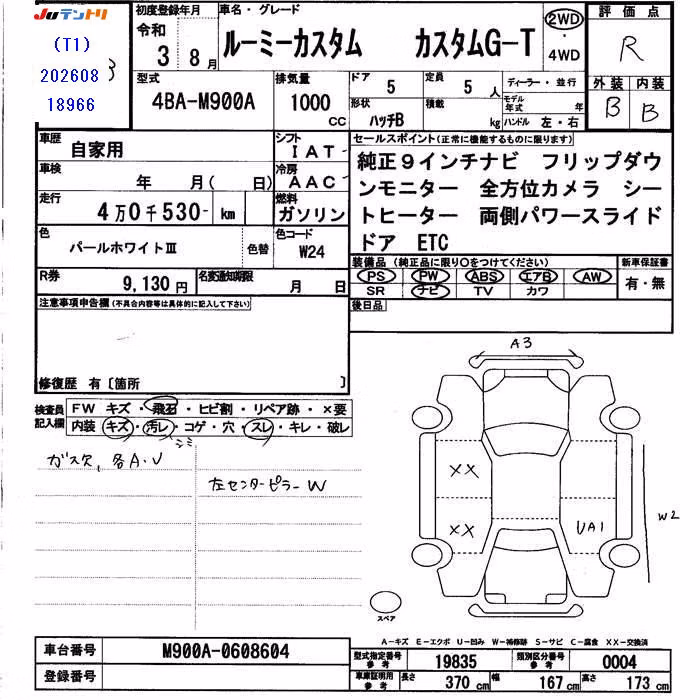 Juテントリ
(T1)
202608
18966
3
初度登録年月
令和
3 8月
車名・グレード
ルーミーカスタム カスタムG-T
2WD
・
4WD
評価点
R
外装 内装
B B
型式
4BA-M900A
排気量
1000
CC
ドア
5
定員
5 人
形状
ハッチB
積載
kg
ディーラー・並行
モデル年式 年
ハンドル 左・右
車歴
自家用
シフト
IAT
車検
年 月( 日)
冷房
AAC
走行
4万0千530- km
燃料
ガソリン
色
パールホワイトⅢ
色替
色コード
W24
R券
9,130円
名変通知期限
月 日
セールスポイント(正常に機能するものに限ります)
純正9インチナビ フリップダウ
ンモニター 全方位カメラ シー
トヒーター 両側パワースライド
ドア ETC
装備品(純正品に限り○をつけてください)
PS PW ABS エアB AW
SR ナビ TV カワ
新車保証書
有・無
後日品
注意事項申告欄(不具合内容等は具体的に記入して下さい)
修復歴 有〔箇所 〕
検査員
記入欄
FW キズ・飛石・ヒビ割・リペア跡・×要
内装 キズ・汚レ・コゲ・穴・スレ・キレ・破レ
シミ
ガス欠、各A.U
左センターピラーW
A3
XX
XX
UA1
W2
スペア
A-キズ E-エクボ U-凹み W-補修跡 S-サビ C-腐食 XX-交換済
車台番号
M900A-0608604
登録番号
型式指定番号
参考
19835
類別区分番号
参考
0004
車庫証明用
参考
長さ 370 cm 幅 167 cm 高さ 173 cm